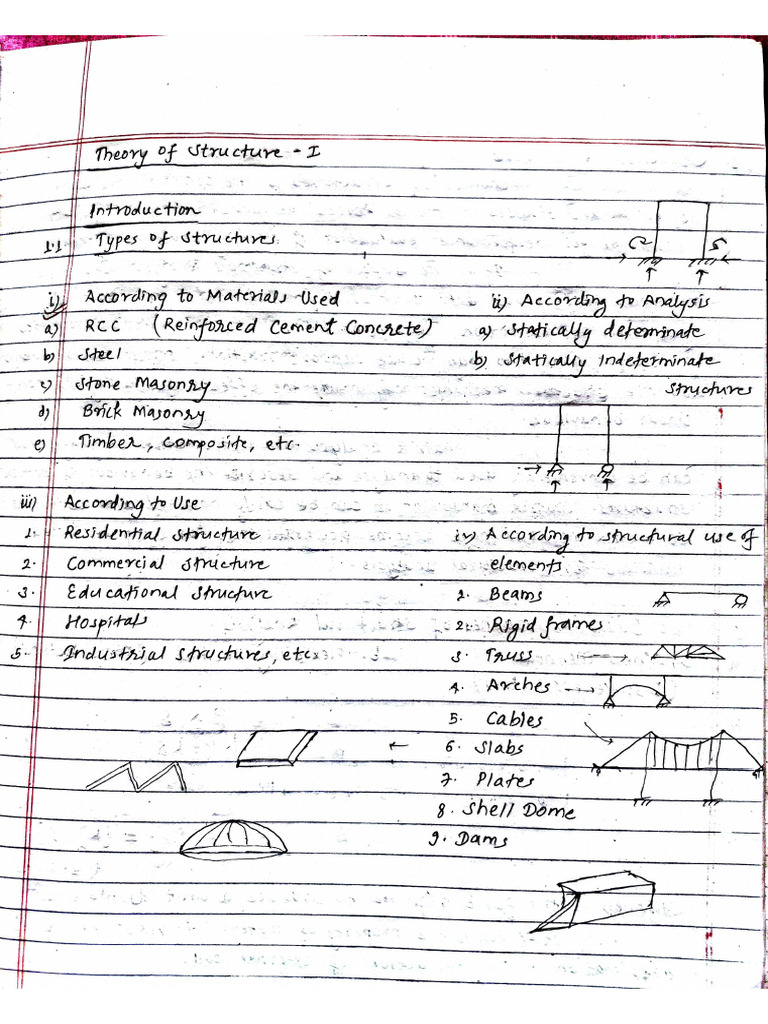 Theory of Structure - I
Introduction
1.1 Types of Structures
i) According to Materials Used
a) RCC (Reinforced Cement Concrete)
b) Steel
c) Stone Masonry
d) Brick Masonry
e) Timber, composite, etc.
ii) According to Analysis
a) Statically determinate
b) Statically Indeterminate
Structures
iii) According to Use
1. Residential Structure
2. Commercial Structure
3. Educational Structure
4. Hospitals
5. Industrial Structures, etc.
iv) According to structural use of
elements
1. Beams
2. Rigid frames
3. Truss
4. Arches
5. Cables
6. Slabs
7. Plates
8. Shell Dome
9. Dams